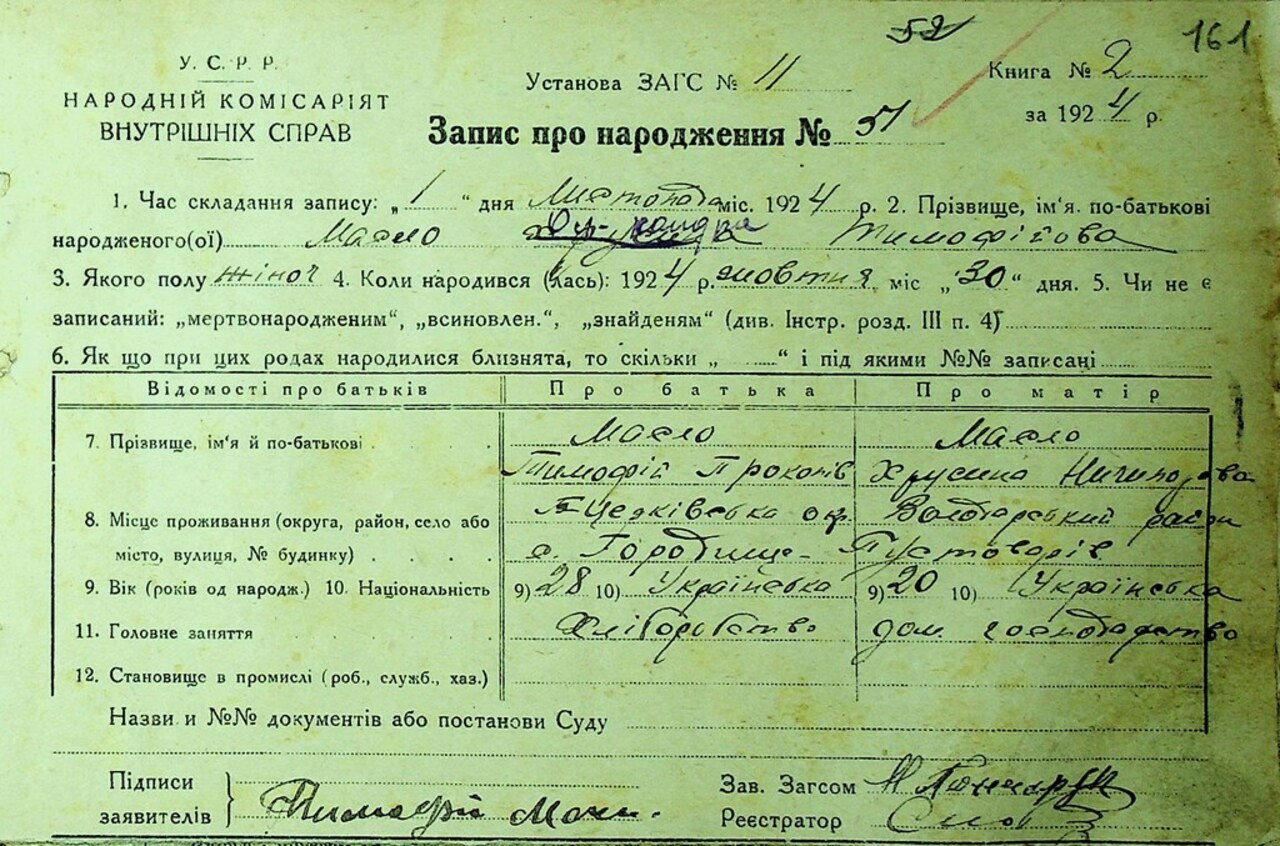 52 161
У. С. Р. Р.
НАРОДНІЙ КОМІСАРІЯТ
ВНУТРІШНІХ СПРАВ
Установа ЗАГС № 11
Книга № 2
за 1924 р.
Запис про народження № 51
1. Час складання запису: „1“ дня Листопада міс. 1924 р. 2. Прізвище, ім'я. по-батькові
народженого(ої) Масло Тимофієва
3. Якого полу жіноч 4. Коли народився (лась): 1924 р. жовтня міс „30“ дня. 5. Чи не є
записаний: „мертвонародженим“, „всиновлен.“, „знайденям“ (див. Інстр. розд. III п. 4)
6. Як що при цих родах народилися близнята, то скільки „ “ і під якими №№ записані
Відомості про батьків Про батька Про матір
7. Прізвище, ім'я й по-батькові Масло Масло
Тимофій Прокопів Хрусина Ничипорова
8. Місце проживання (округа, район, село або Б.Церківська окр. Володарський район
місто, вулиця, № будинку) с. Городище-Пустоварів
9. Вік (років од народж.) 10. Національність 9) 28 10) Українська 9) 20 10) Українська
11. Головне заняття Хліборобство дом. господарство
12. Становище в промислі (роб., служб., хаз.)
Назви и №№ документів або постанови Суду
Підписи
заявителів Тимофій
Зав. Загсом Гончарук
Реєстратор